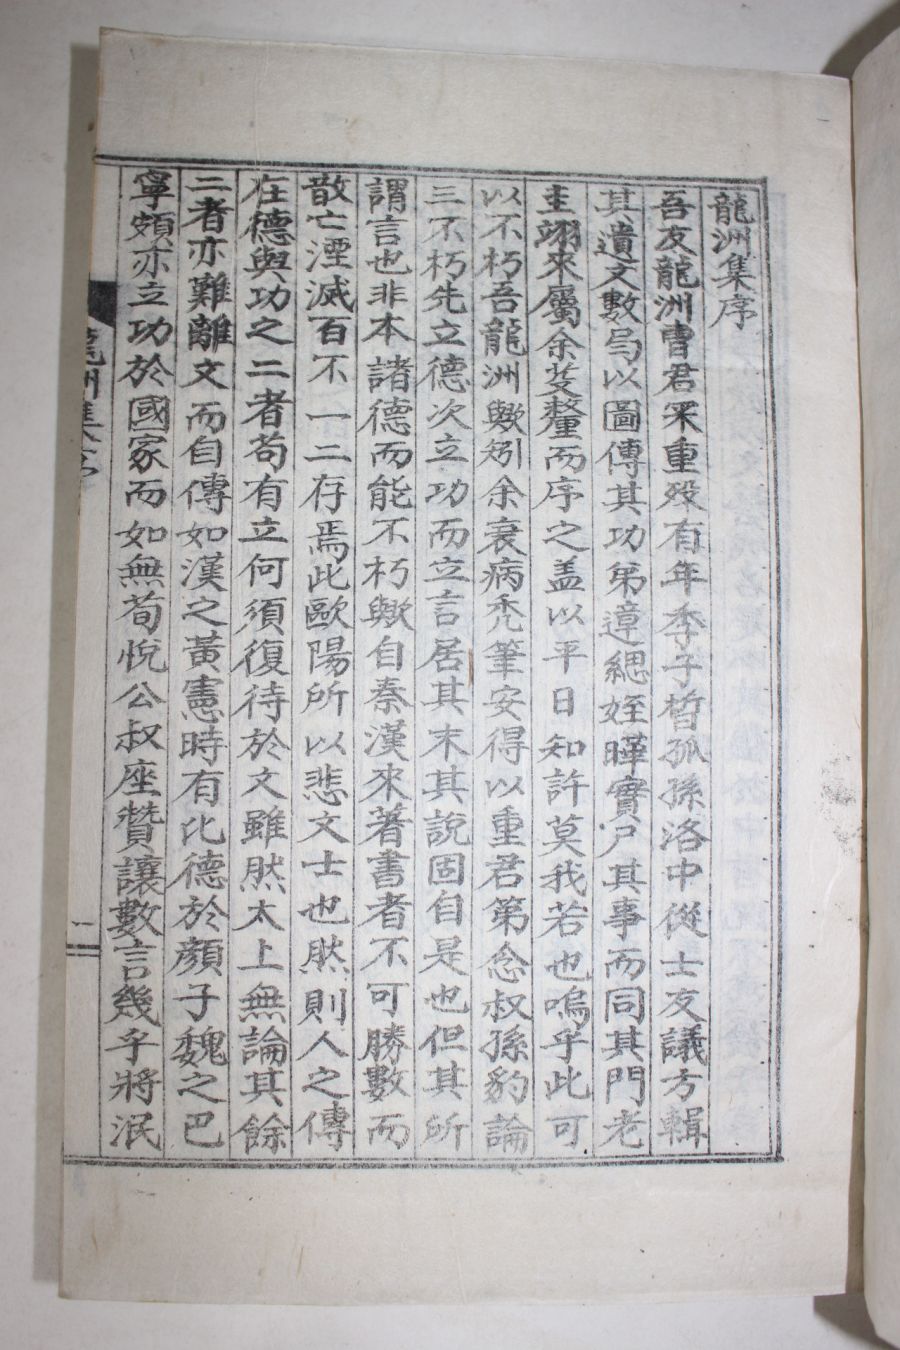 龍洲集序
吾友龍洲曹君罙重歿有年季子晳孤孫洛中從士友議方輯
其遺文數局以圖傳其功弟遧緦姪暐實尸其事而同其門老
主翊來屬余芟釐而序之盖以平日知許莫我若也嗚乎此可
以不朽吾龍洲歟矧余衰病禿筆安得以重君第念叔孫豹論
三不朽先立德次立功而立言居其末其說固自是也但其所
謂言也非本諸德而能不朽歟自秦漢來著書者不可勝數而
散亡湮滅百不一二存焉此歐陽所以悲文士也然則人之傳
在德與功之二者苟有立何須復待於文雖然太上無論其餘
二者亦難離文而自傳如漢之黃憲時有比德於顏子魏之巴
寧頗亦立功於國家而如無荀悅公叔座贊讓數言幾乎將泯
龍洲集序
一